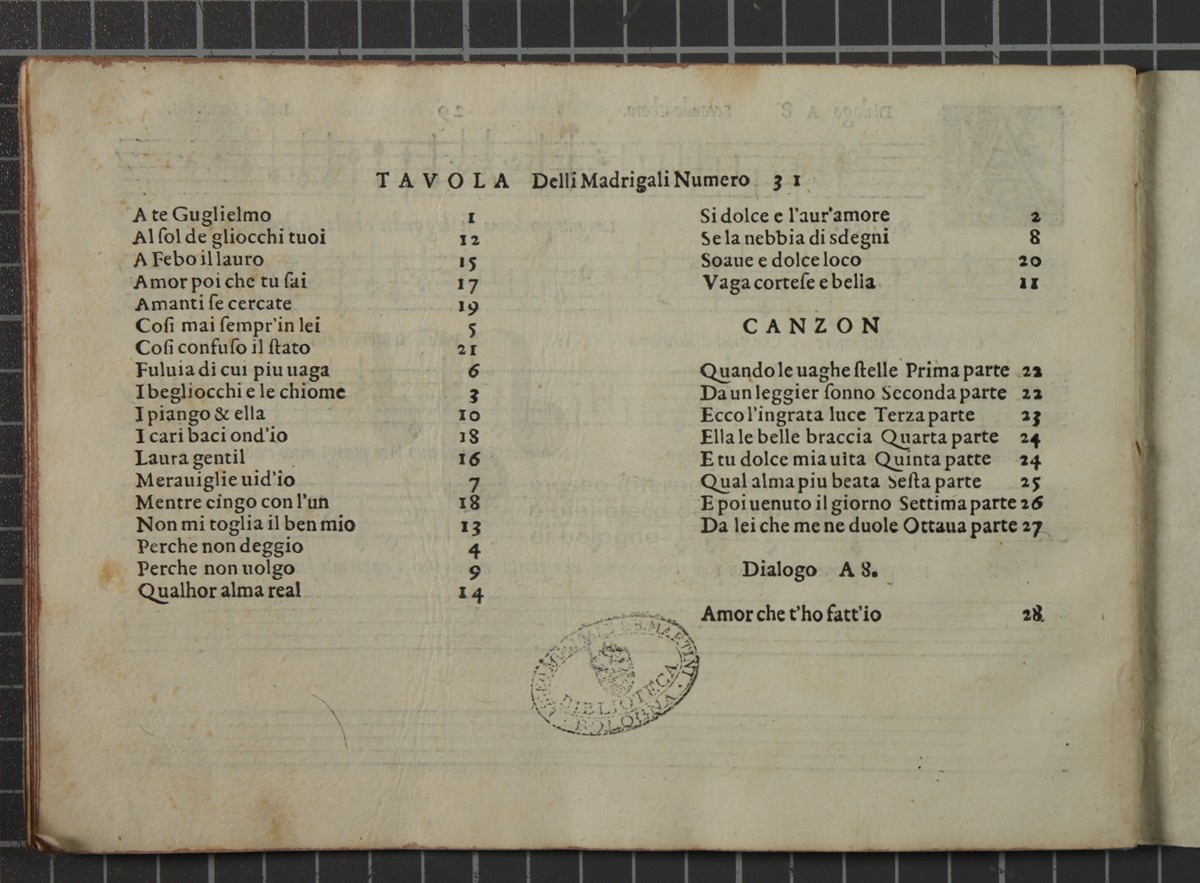 TAVOLA Delli Madrigali Numero 31
A te Guglielmo 1
Al ſol de gliocchi tuoi 12
A Febo il lauro 15
Amor poi che tu ſai 17
Amanti ſe cercate 19
Coſi mai ſempr'in lei 5
Coſi confuſo il ſtato 21
Fuluia di cui piu uaga 6
I begliocchi e le chiome 3
I piango & ella 10
I cari baci ond'io 18
Laura gentil 16
Merauiglie uid'io 7
Mentre cingo con l'un 18
Non mi toglia il ben mio 13
Perche non deggio 4
Perche non uolgo 9
Qualhor alma real 14
Si dolce e l'aur'amore 2
Se la nebbia di sdegni 8
Soaue e dolce loco 20
Vaga corteſe e bella 11
CANZON
Quando le uaghe ſtelle Prima parte 22
Da un leggier ſonno Seconda parte 22
Ecco l'ingrata luce Terza parte 23
Ella le belle braccia Quarta parte 24
E tu dolce mia uita Quinta patte 24
Qual alma piu beata Seſta parte 25
E poi uenuto il giorno Settima parte 26
Da lei che me ne duole Ottaua parte 27
Dialogo A 8.
Amor che t'ho fatt'io 28
B. MARTINI
BIBLIOTECA
BOLOGNA